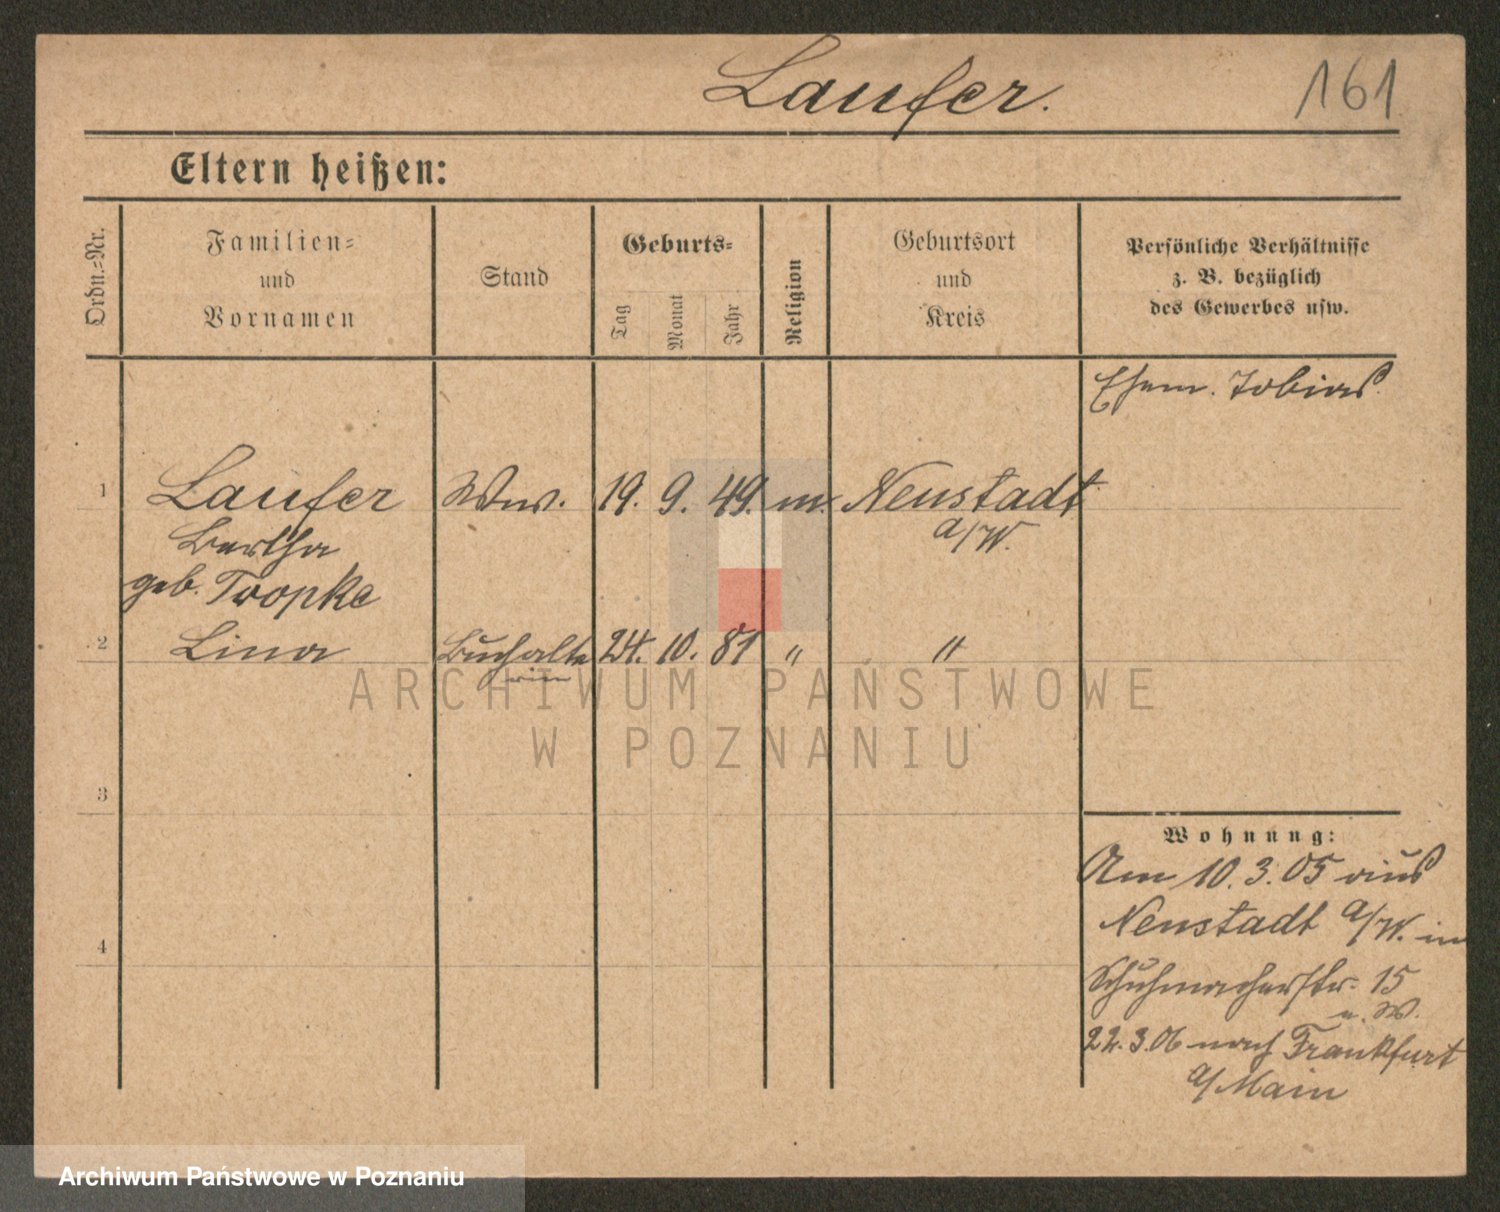 Laufer. 161
Eltern heißen:
Ordn.-Nr.
Familien-
und
Vornamen
Stand
Geburts-
Tag
Monat
Jahr
Religion
Geburtsort
und
Kreis
Persönliche Verhältnisse
z. B. bezüglich
des Gewerbes usw.
Ehem. Tobias.
1 Laufer Wwe. 19. 9. 49. m. Neustadt
Bertha a/W.
geb. Tropke
2 Lina Buchalte 24. 10. 81 " "
rin
ARCHIWUM PAŃSTWOWE
W POZNANIU
3
4
Wohnung:
Am 10.3.05 aus
Neustadt a/W. in
Schuhmacherstr. 15
u. W.
22.3.06 nach Frankfurt
a/Main
Archiwum Państwowe w Poznaniu